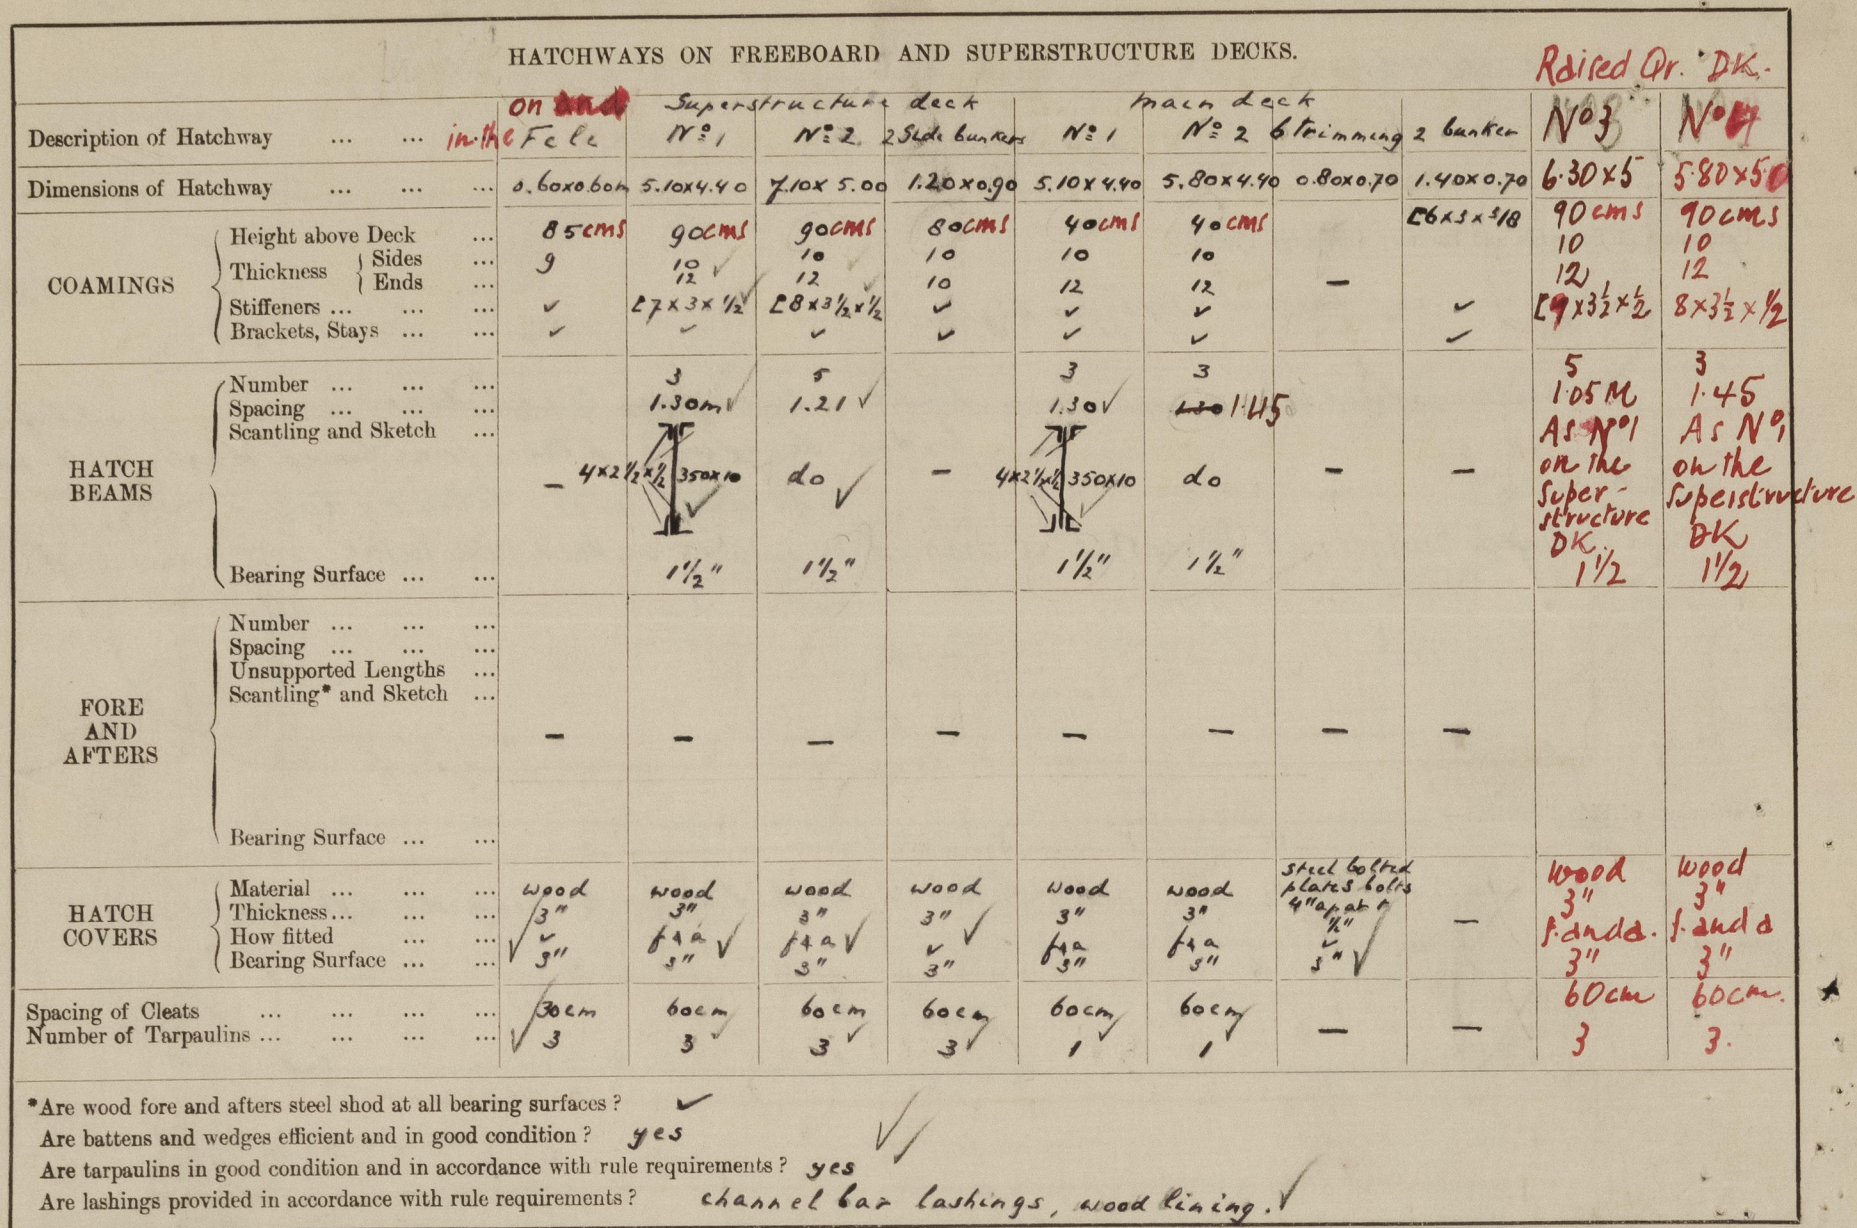 HATCHWAYS ON FREEBOARD AND SUPERSTRUCTURE DECKS.
Raised Qr. DK.
on and Superstructure deck main deck
Description of Hatchway ... ... in the Fcle Nº 1 Nº 2 2 Side bunkers Nº 1 Nº 2 6 trimming 2 bunker Nº3 Nº4
Dimensions of Hatchway ... ... ... 0.60x0.60m 5.10x4.40 7.10x5.00 1.20x0.90 5.10x4.40 5.80x4.40 0.80x0.70 1.40x0.70 6.30x5 5.80x5.0
COAMINGS
Height above Deck ... 85cms 90cms 90cms 80cms 40cms 40cms [6x3x3/8 90cms 90cms
Thickness { Sides ... 9 10 ✓ 10 ✓ 10 10 10 10 10
Ends ... 12 12 ✓ 10 12 12 — 12 12
Stiffeners ... ... ... ✓ [7x3x1/2 ✓ [8x3½x½ ✓ ✓ ✓ ✓ [9x3½x½ 8x3½x1/2
Brackets, Stays ... ... ✓ ✓ ✓ ✓ ✓ ✓ ✓
HATCH BEAMS
Number ... ... ... 3 5 3 3 5 3
Spacing ... ... ... 1.30m ✓ 1.21 ✓ 1.30 ✓ 1.30 1.45 1.05M 1.45
Scantling and Sketch ... — 4x2½x½ 350x10 do ✓ — 4x2½x½ 350x10 do — — As Nº1 on the Super-structure DK. As Nº1 on the Superstructure DK
Bearing Surface ... ... 1½" 1½" 1½" 1½" 1½ 1½
FORE AND AFTERS
Number ... ... ...
Spacing ... ... ...
Unsupported Lengths ...
Scantling* and Sketch ...
— — — — — — — —
Bearing Surface ... ...
HATCH COVERS
Material ... ... ... wood wood wood wood wood wood steel bolted plates bolts 4" apart wood wood
Thickness... ... ... 3" 3" 3" 3" 3" 3" ½" — 3" 3"
How fitted ... ... ✓ f & a ✓ f & a ✓ ✓ f & a f & a ✓ f. and a. f. and a
Bearing Surface ... ... 3" 3" 3" 3" 3" 3" 3" ✓ 3" 3"
Spacing of Cleats ... ... ... ... 30cm 60cm 60cm 60cm 60cm 60cm 60cm 60cm.
Number of Tarpaulins ... ... ... ... ✓ 3 3 ✓ 3 ✓ 3 ✓ 1 1 — — 3 3.
*Are wood fore and afters steel shod at all bearing surfaces ? ✓
Are battens and wedges efficient and in good condition ? yes ✓✓
Are tarpaulins in good condition and in accordance with rule requirements ? yes
Are lashings provided in accordance with rule requirements ? channel bar lashings, wood lining. ✓